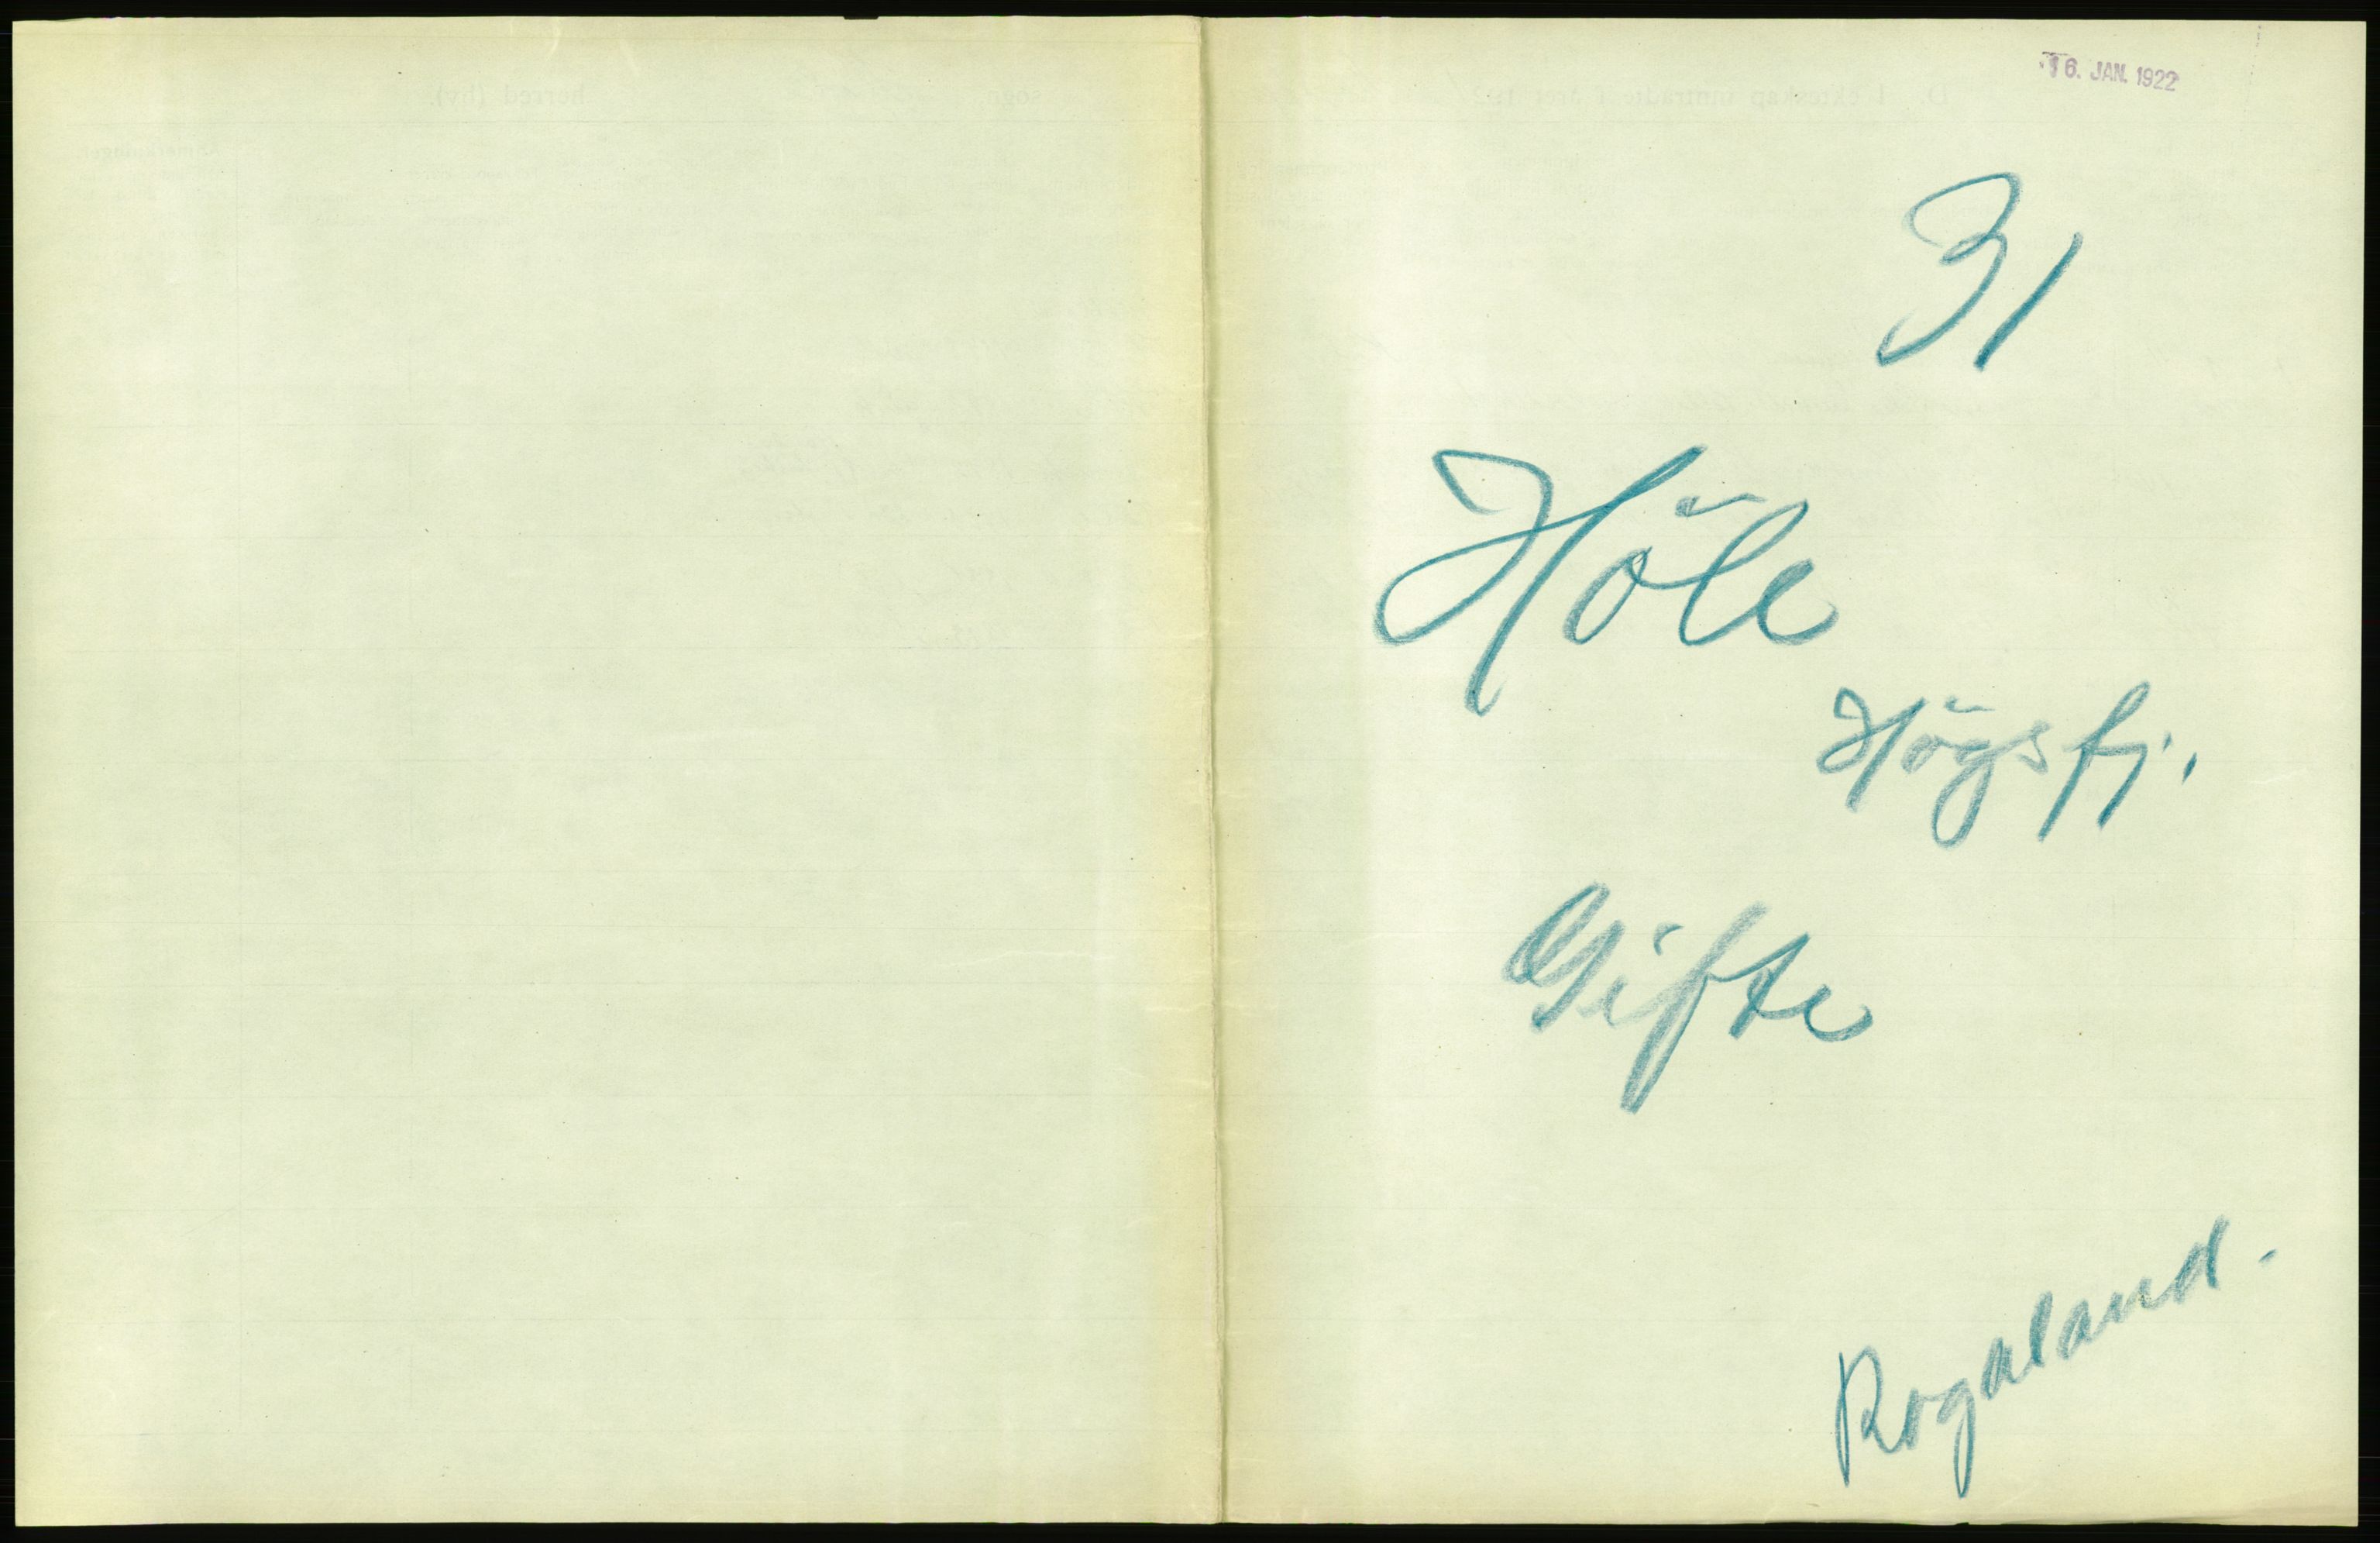 16. JAN. 1922
31
Höle
Högsfj.
Gifte
Rogaland.